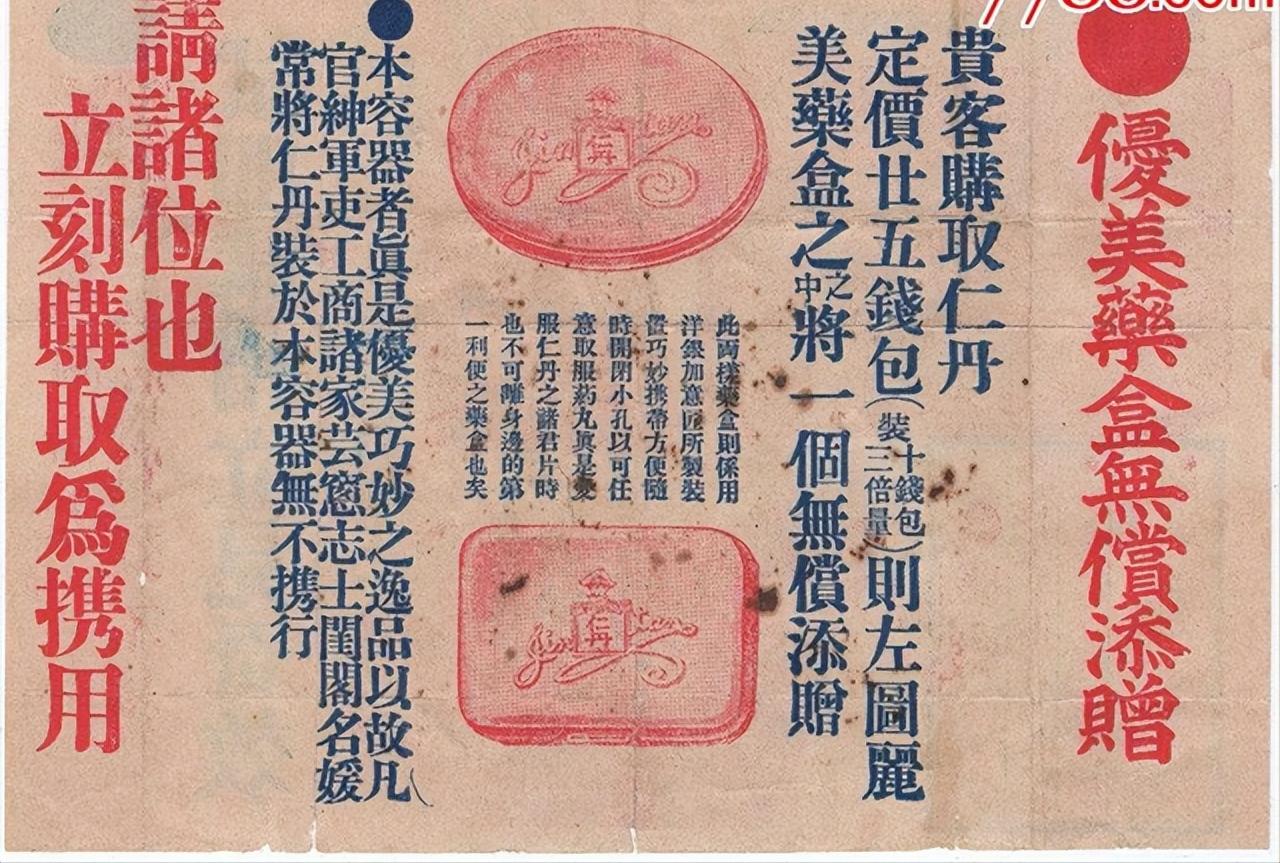 優美藥盒無償添贈
貴客購取仁丹
定價廿五錢包（裝十錢包三倍量）則左圖麗
美藥盒之中之將一個無償添贈
仁丹
此両樣藥盒則係用
洋銀加意匠所製裝
置巧妙携帶方便隨
時開閉小孔以可任
意取服药丸眞是愛
服仁丹之諸君片時
也不可離身邊的第
一利便之藥盒也矣
Jintan
仁丹
本容器者眞是優美巧妙之逸品以故凡
官紳軍吏工商諸家芸窓志士閨閣名媛
常將仁丹裝於本容器無不携行
請諸位也
立刻購取爲携用